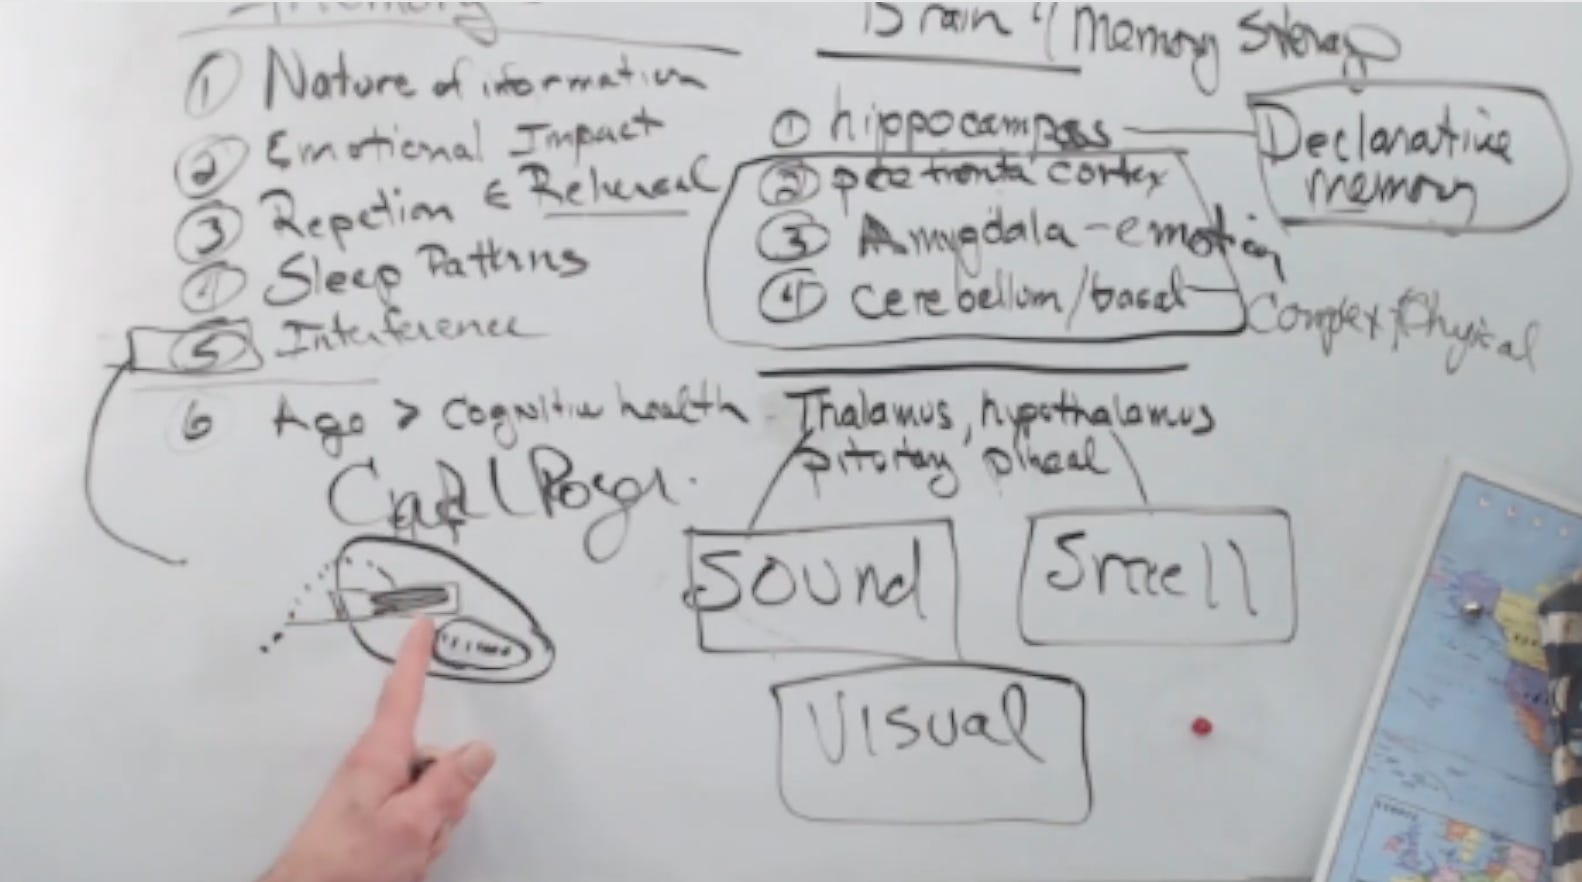 Memory
① Nature of information
② Emotional Impact
③ Repetion & Rehersal
④ Sleep Patterns
⑤ Interference
6 Age > Cognitive health
Carl Roger.
Brain & Memory Storage
① hippocampus
Declarative
memory
② prefrontal cortex
③ Amygdala - emotion
④ Cerebellum/basal
Complex Physical
Thalamus, hypothalamus
pitutary, pineal
Sound
Smell
Visual